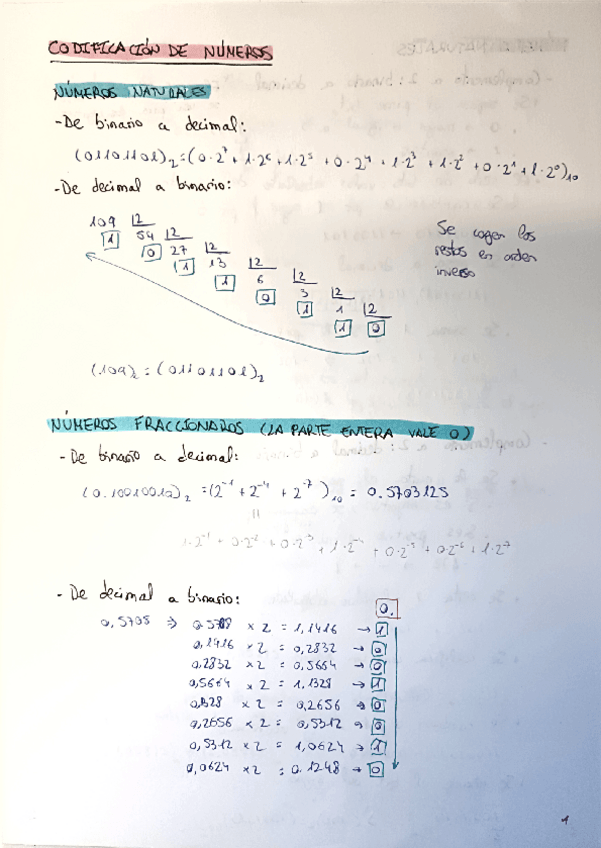 CODIFICACIÓN DE NÚMEROS
NÚMEROS NATURALES
- De binario a decimal:
(01101101)₂ = (0·2⁷ + 1·2⁶ + 1·2⁵ + 0·2⁴ + 1·2³ + 1·2² + 0·2¹ + 1·2⁰)₁₀
- De decimal a binario:
109 |2
1 54 |2
0 27 |2
1 13 |2
1 6 |2
0 3 |2
1 1 |2
1 0
Se cogen los
restos en orden
inverso
(109)₂ = (01101101)₂
NÚMEROS FRACCIONADOS (LA PARTE ENTERA VALE 0)
- De binario a decimal:
(0.10010012)₂ = (2⁻¹ + 2⁻⁴ + 2⁻⁷)₁₀ = 0.5703125
=
1·2⁻¹ + 0·2⁻² + 0·2⁻³ + 1·2⁻⁴ + 0·2⁻⁵ + 0·2⁻⁶ + 1·2⁻⁷
- De decimal a binario:
0.
0,5708 ⇒ 0,5708 × 2 = 1,1416 → 1
0,1416 × 2 = 0,2832 → 0
0,2832 × 2 = 0,5664 → 0
0,5664 × 2 = 1,1328 → 1
0,1328 × 2 = 0,2656 → 0
0,2656 × 2 = 0,5312 → 0
0,5312 × 2 = 1,0624 → 1
0,0624 × 2 = 0.1248 → 0
1